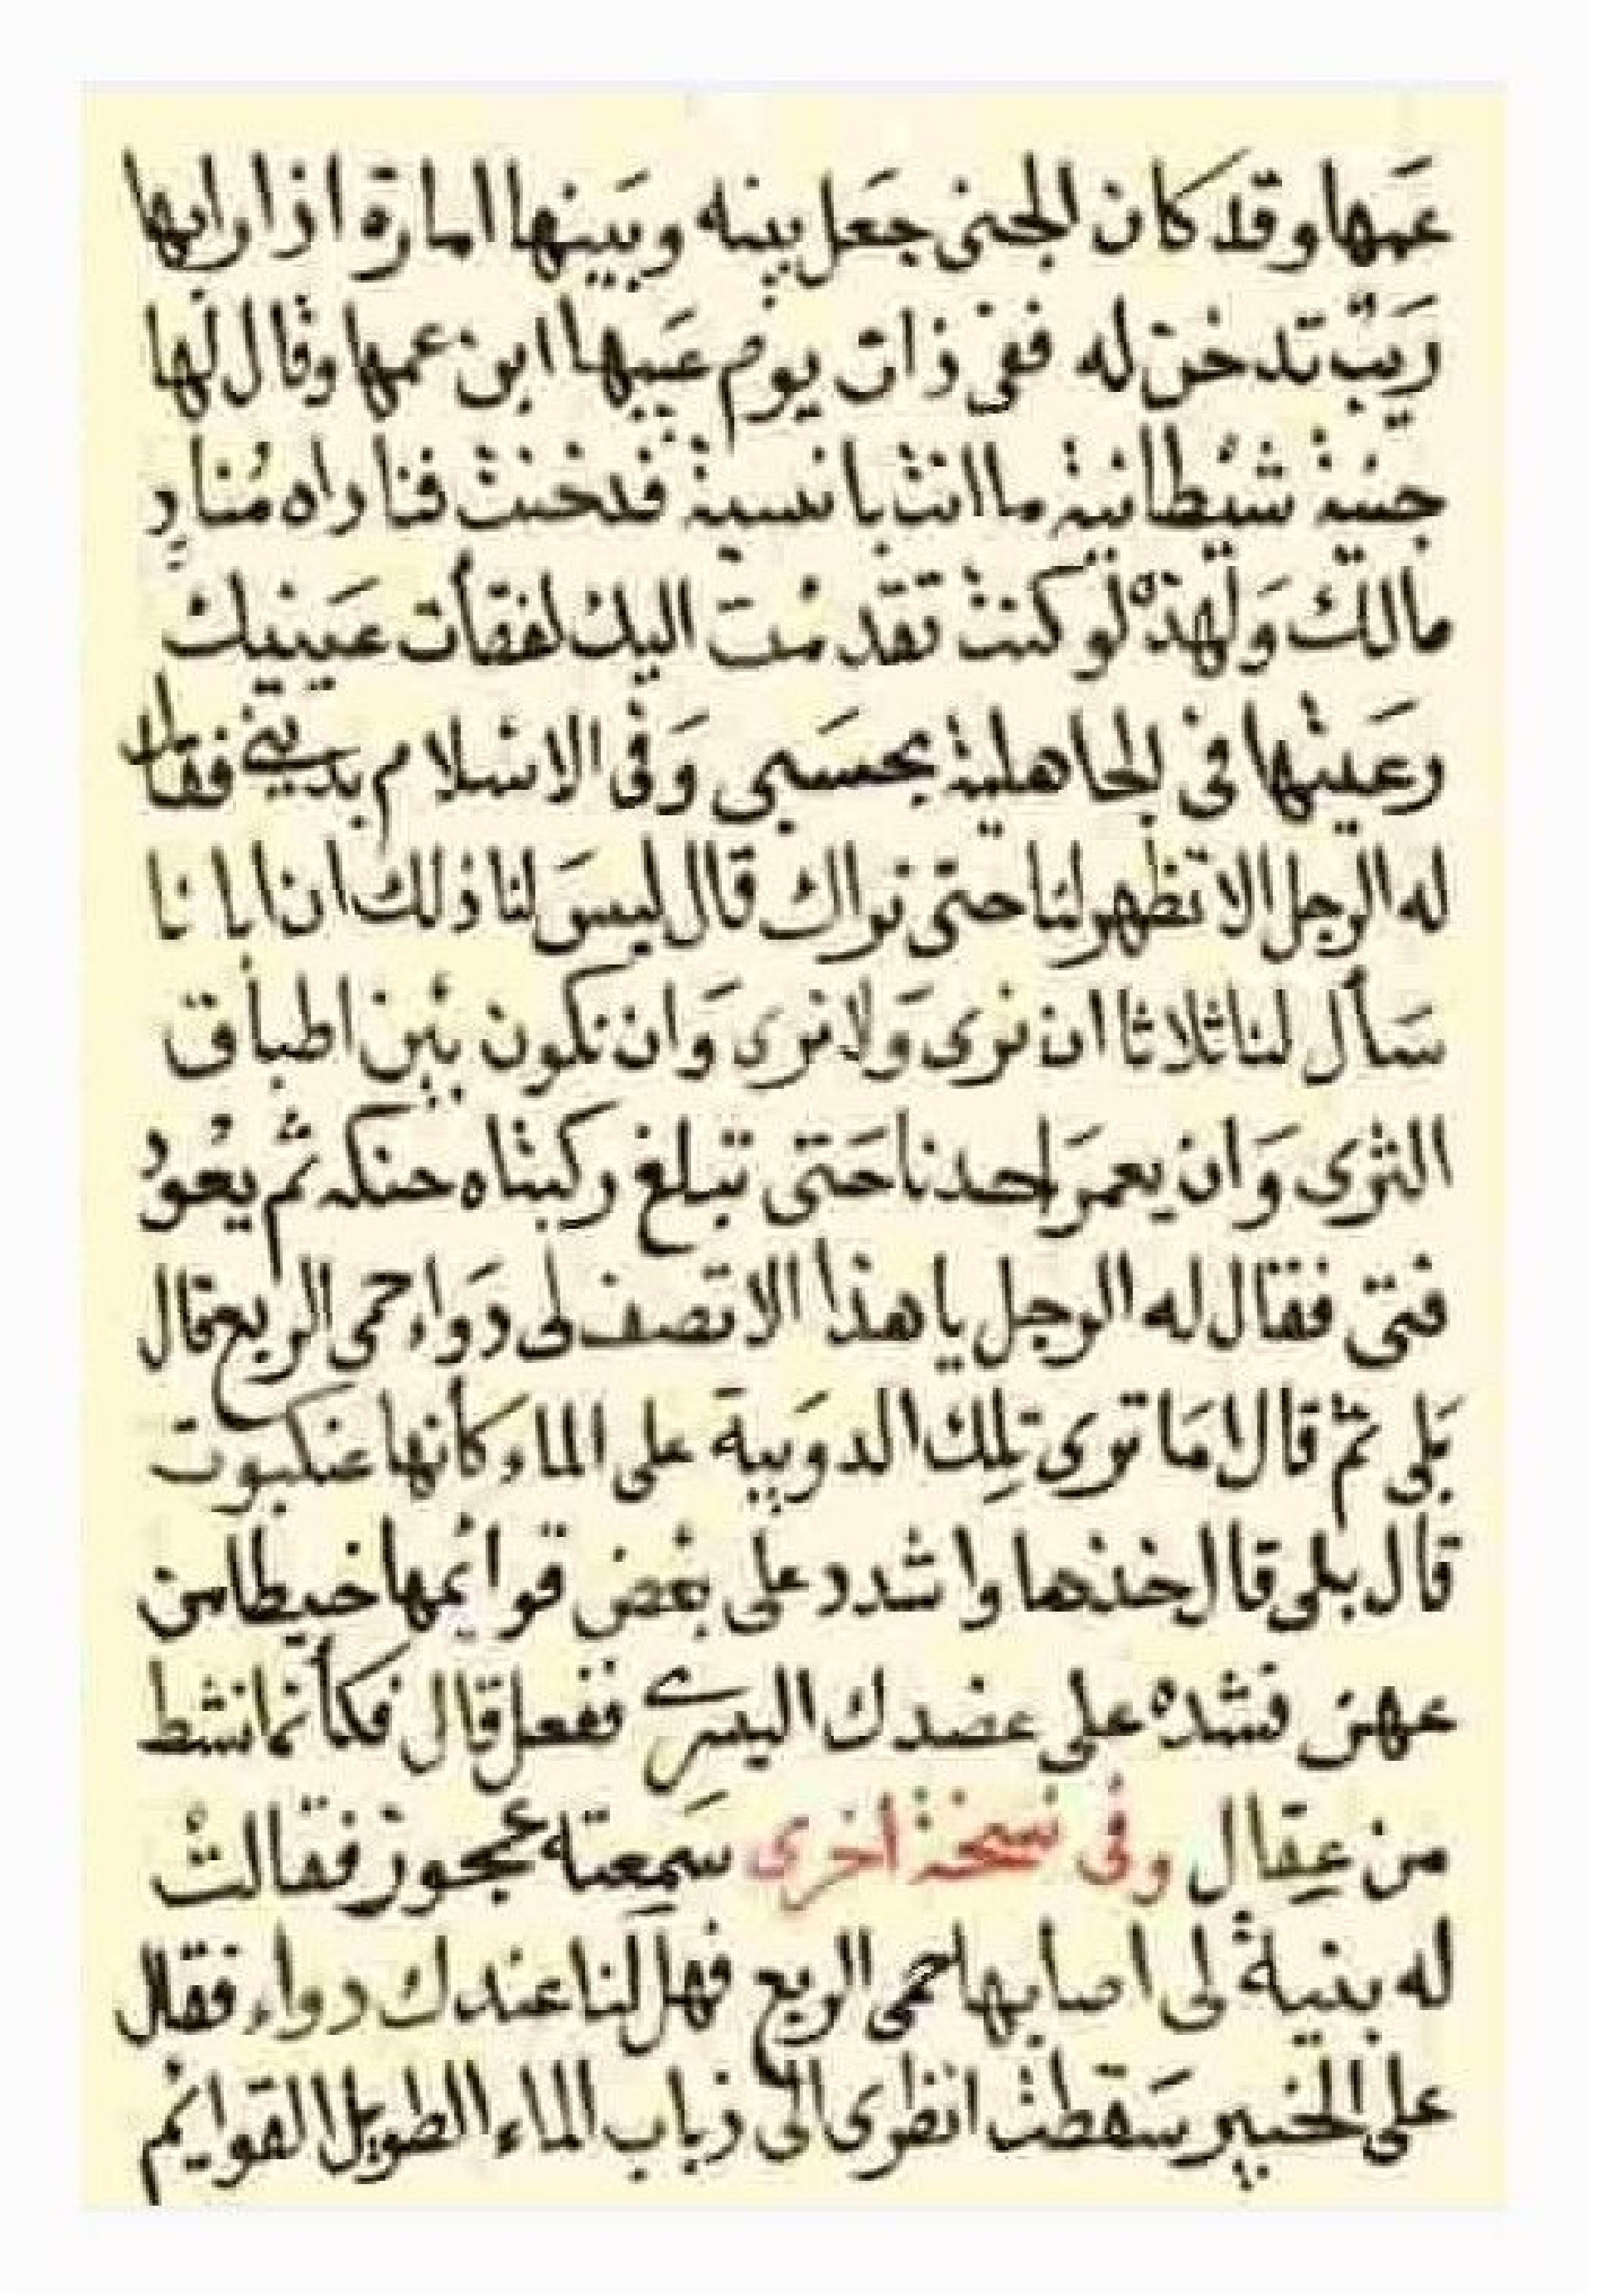 عمها وقد كان الجني جعل بينه وبينها امارة اذا رابها
رَيبٌ تدخن له ففي ذات يوم عَيبها ابن عمها وقال لها
جنية شيطانية ما انت بانسية فدخنت فناداه مُنادٍ
مالك وَلهذه لو كنت تقدمت اليك لفقأت عَينيك
رعَيتها في الجاهلية بحسَبي وَفي الاسلام بديني فقال
له الرجل الا تظهر لنا حتى نراك قال ليسَ لنا ذلك ان ابانا
سَأل لنا ثلاثا ان نرى وَلا نرى وَان نكون بين اطباق
الثرى وَان يعمرَ احدنا حَتى تبلغ ركبتاه حنكه ثم يعود
فتى فقال له الرجل يا هذا الا تصف لي دوَاء حمى الربع قال
بَلى ثم قال امَا ترى تِلك الدوَيبة على الماء كأنها عنكبوت
قال بلى قال خذها واشدد على بعض قوائمها خيطا من
عهن فشده على عضدك اليسرى ففعل قال فكأنما نشط
من عِقال وفي نسخة اخرى سَمِعته عجوز فقالت
له بنية لي اصابها حمى الربع فهل لنا عندك دواء فقال
على الخبير سَقطت انظري الى ذباب الماء الطويل القوائم